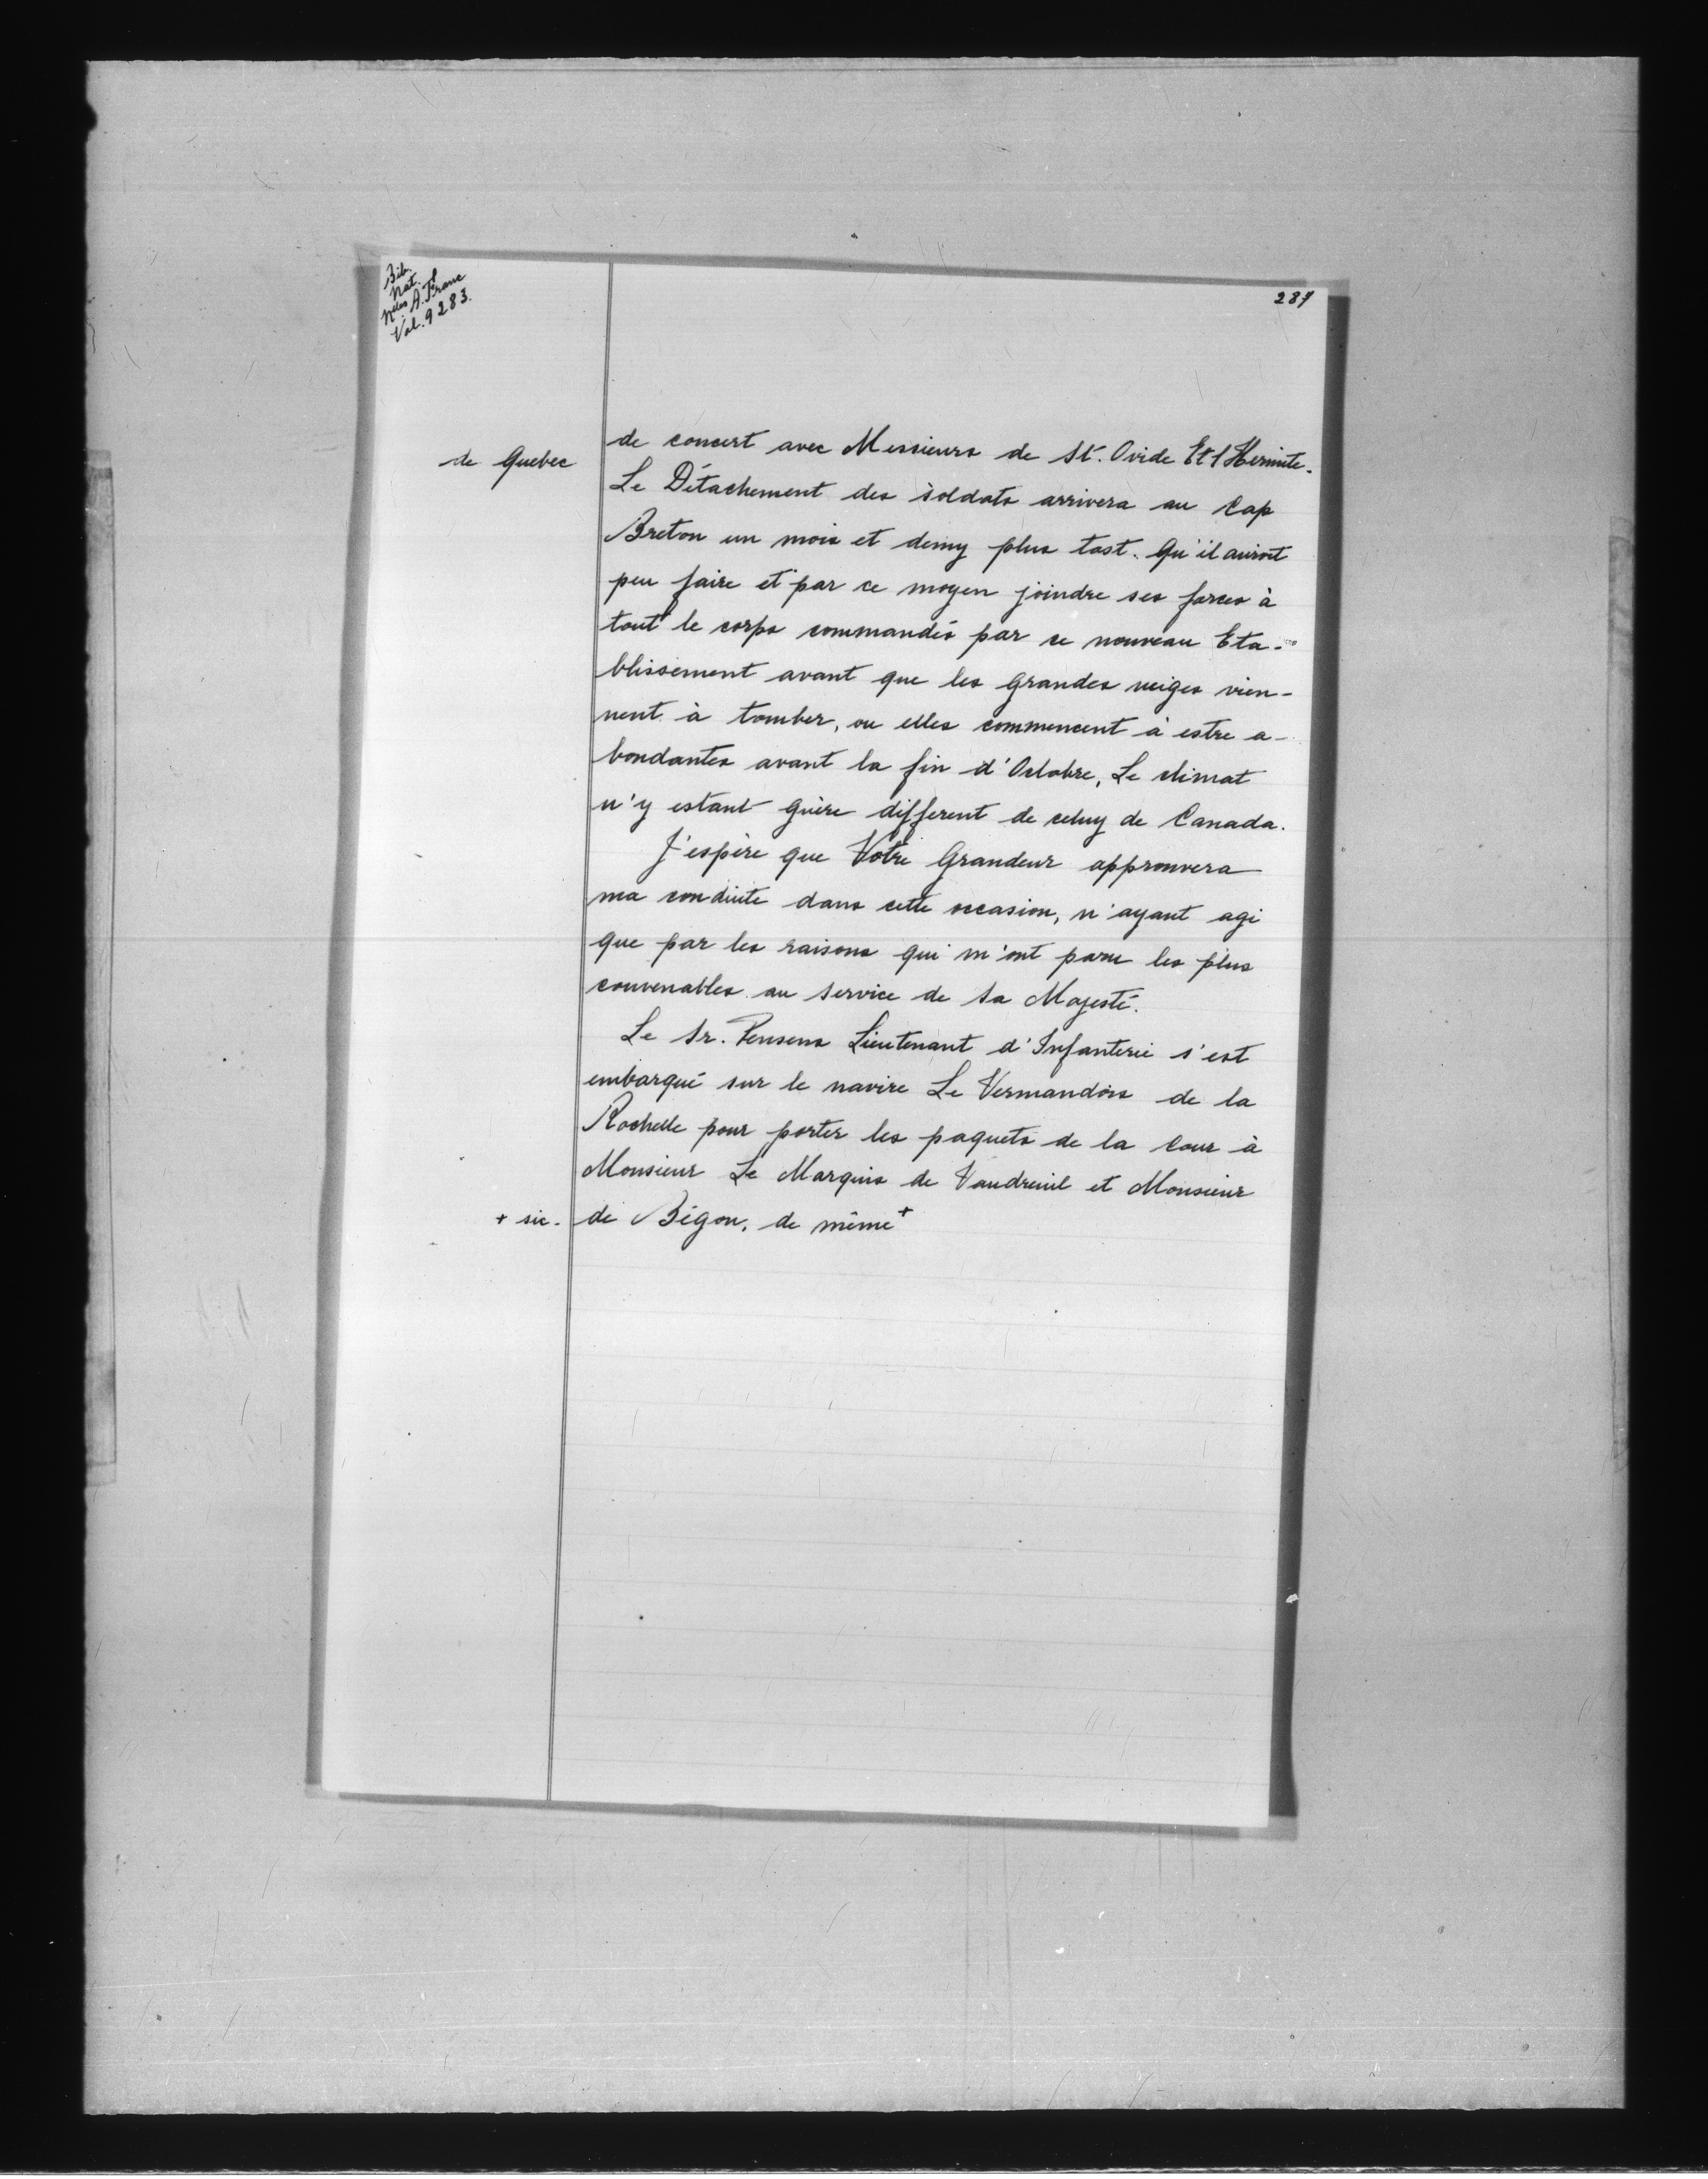 Bib.
Nat.
Nlles A. Franc
Vol. 9283.
287
de Quebec
de concert avec Messieurs de St. Ovide Et l'Hermite.
Le Détachement des soldats arrivera au Cap
Breton un mois et demy plus tost. Qu'il auroit
peu faire et par ce moyen joindre ses forces à
tout le corps commandés par ce nouveau Eta-
blissement avant que les grandes neiges vien-
nent à tomber, ou elles commencent à estre a-
bondantes avant la fin d'Octobre, Le climat
n'y estant guère different de celuy de Canada.
J'espère que Votre Grandeur approuvera
ma conduite dans cette occasion, n'ayant agi
que par les raisons qui m'ont paru les plus
convenables au service de Sa Majesté.
Le Sr. Pensens Lieutenant d'Infanterie s'est
embarqué sur le navire Le Vermandois de la
Rochelle pour porter les paquets de la Cour à
Monsieur Le Marquis de Vaudreuil et Monsieur
de Bégon. de même +
+ sic.